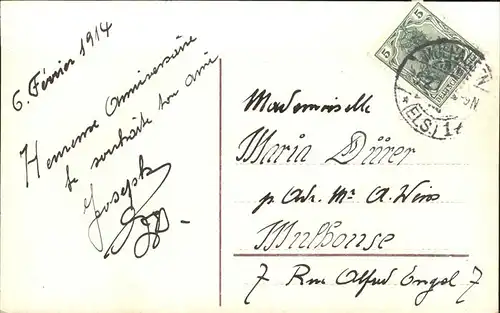 6. Février 1914
Heureuse Anniversaire
te souhaite ton ami
Joseph
5 5
MÜLHAUSEN
* (ELS.) 1 *
Mademoiselle
Maria Dürer
p. Adr. Mr A. Weiss
Mulhouse
7 Rue Alfred Engel 7